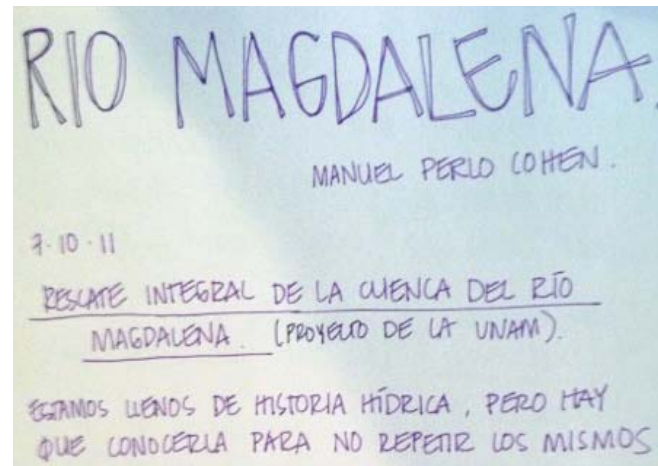 RIO MAGDALENA.
MANUEL PERLO COHEN.
7·10·11
RESCATE INTEGRAL DE LA CUENCA DEL RÍO
MAGDALENA. (PROYECTO DE LA UNAM).
ESTAMOS LLENOS DE HISTORIA HÍDRICA, PERO HAY
QUE CONOCERLA PARA NO REPETIR LOS MISMOS